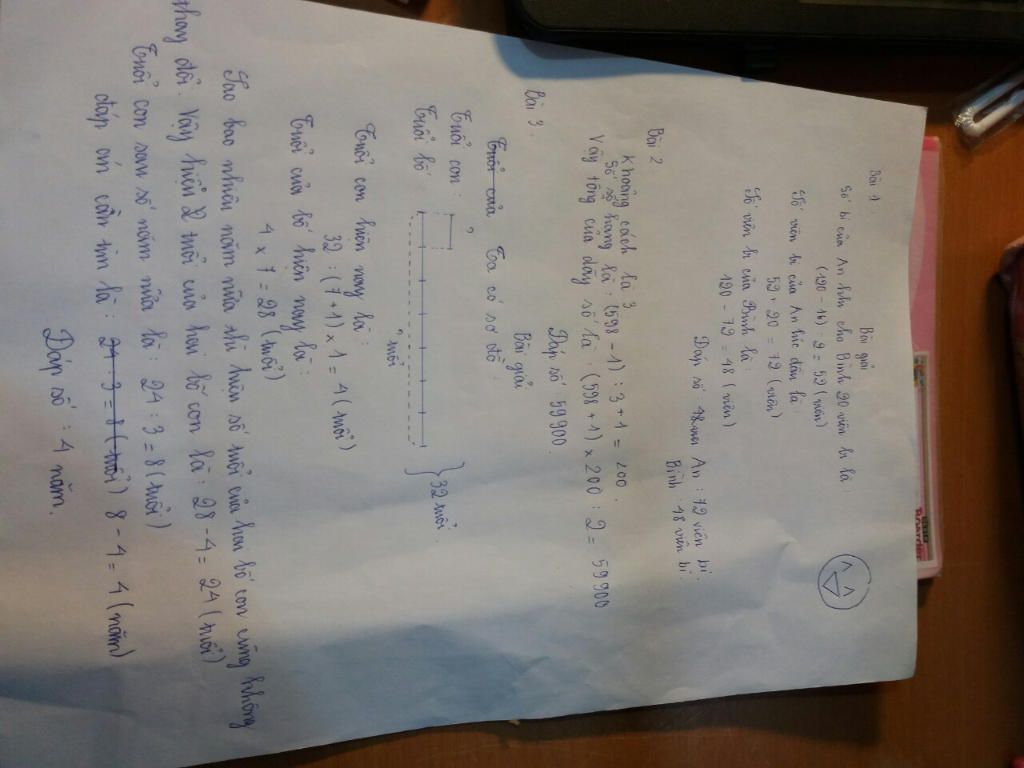 Bài 1.
Bài giải
Số bi của An nếu cho Bình 20 viên bi là:
(120 - 16) : 2 = 52 (viên)
Số viên bi của An lúc đầu là:
52 + 20 = 72 (viên)
Số viên bi của Bình là:
120 - 72 = 48 (viên)
Đáp số An : 72 viên bi.
Bình : 48 viên bi.
Bài 2
Khoảng cách là 3
Số số hạng là : (598 - 1) : 3 + 1 = 200.
Vậy tổng của dãy số là: (598 + 1) x 200 : 2 = 59900
Đáp số 59900.
Bài 3.
Bài giải
Tuổi của Ta có sơ đồ.
Tuổi con : ?
Tuổi bố
? tuổi
32 tuổi.
Tuổi con hiện nay là:
32 : (7+1) x 1 = 4 (tuổi)
Tuổi của bố hiện nay là:
4 x 7 = 28 (tuổi)
Sao bao nhiêu năm nữa thì hiệu số tuổi của hai bố con cũng không
thay đổi. Vậy hiệu 2 tuổi của hai bố con là: 28 - 4 = 24 (tuổi)
Tuổi con sau số năm nữa là: 24 : 3 = 8 (tuổi)
đáp án cần tìm là: 24 : 3 = 8 (tuổi) 8 - 4 = 4 (năm)
Đáp số : 4 năm.